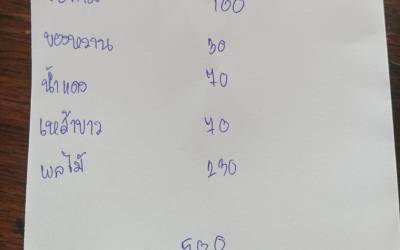 100
ของหวาน 30
น้ำแดง 70
เหล้าขาว 70
ผลไม้ 230
530